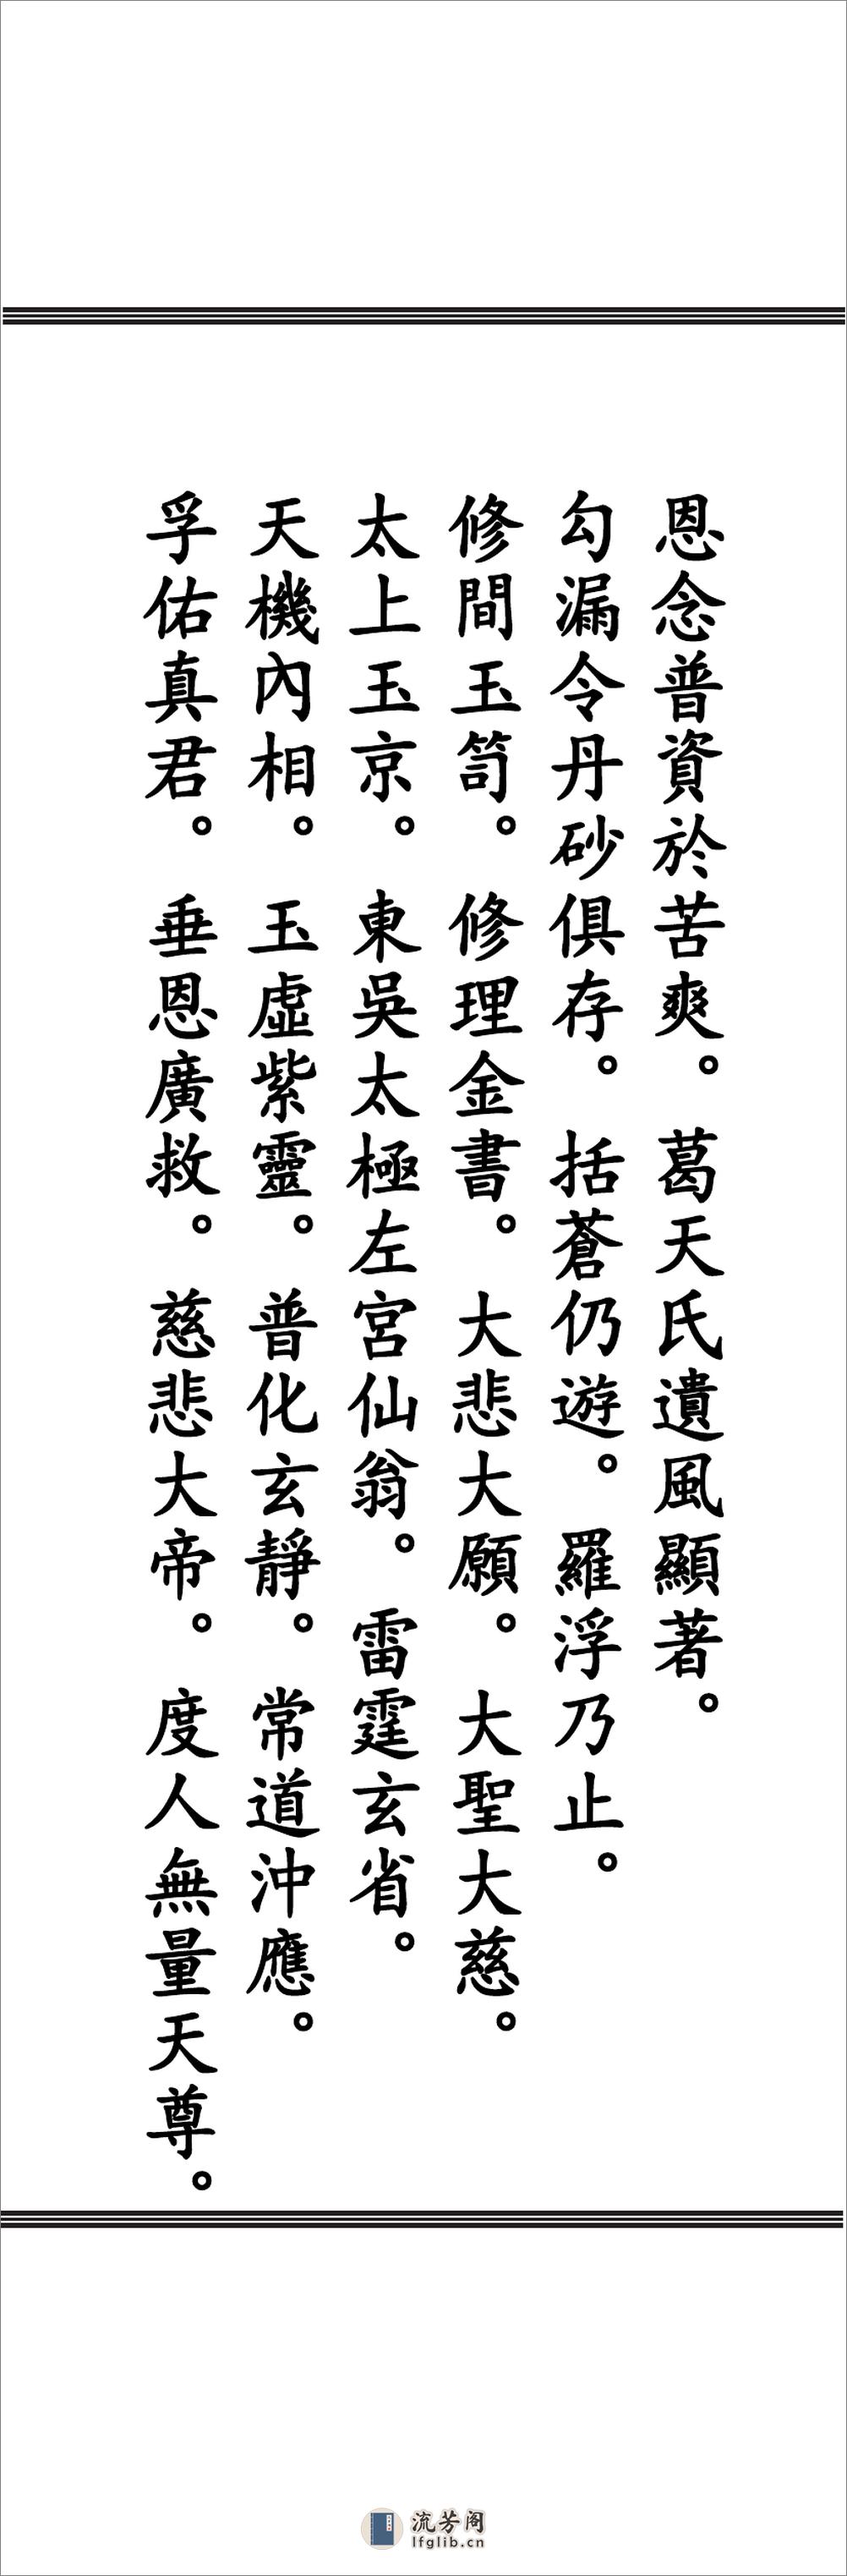 恩念普資於苦爽。葛天氏遺風顯著。
勾漏令丹砂俱存。括蒼仍遊。羅浮乃止。
修間玉笥。修理金書。大悲大願。大聖大慈。
太上玉京。東吳太極左宮仙翁。雷霆玄省。
天機內相。玉虛紫靈。普化玄靜。常道沖應。
孚佑真君。垂恩廣救。慈悲大帝。度人無量天尊。
流芳阁
lfglib.cn